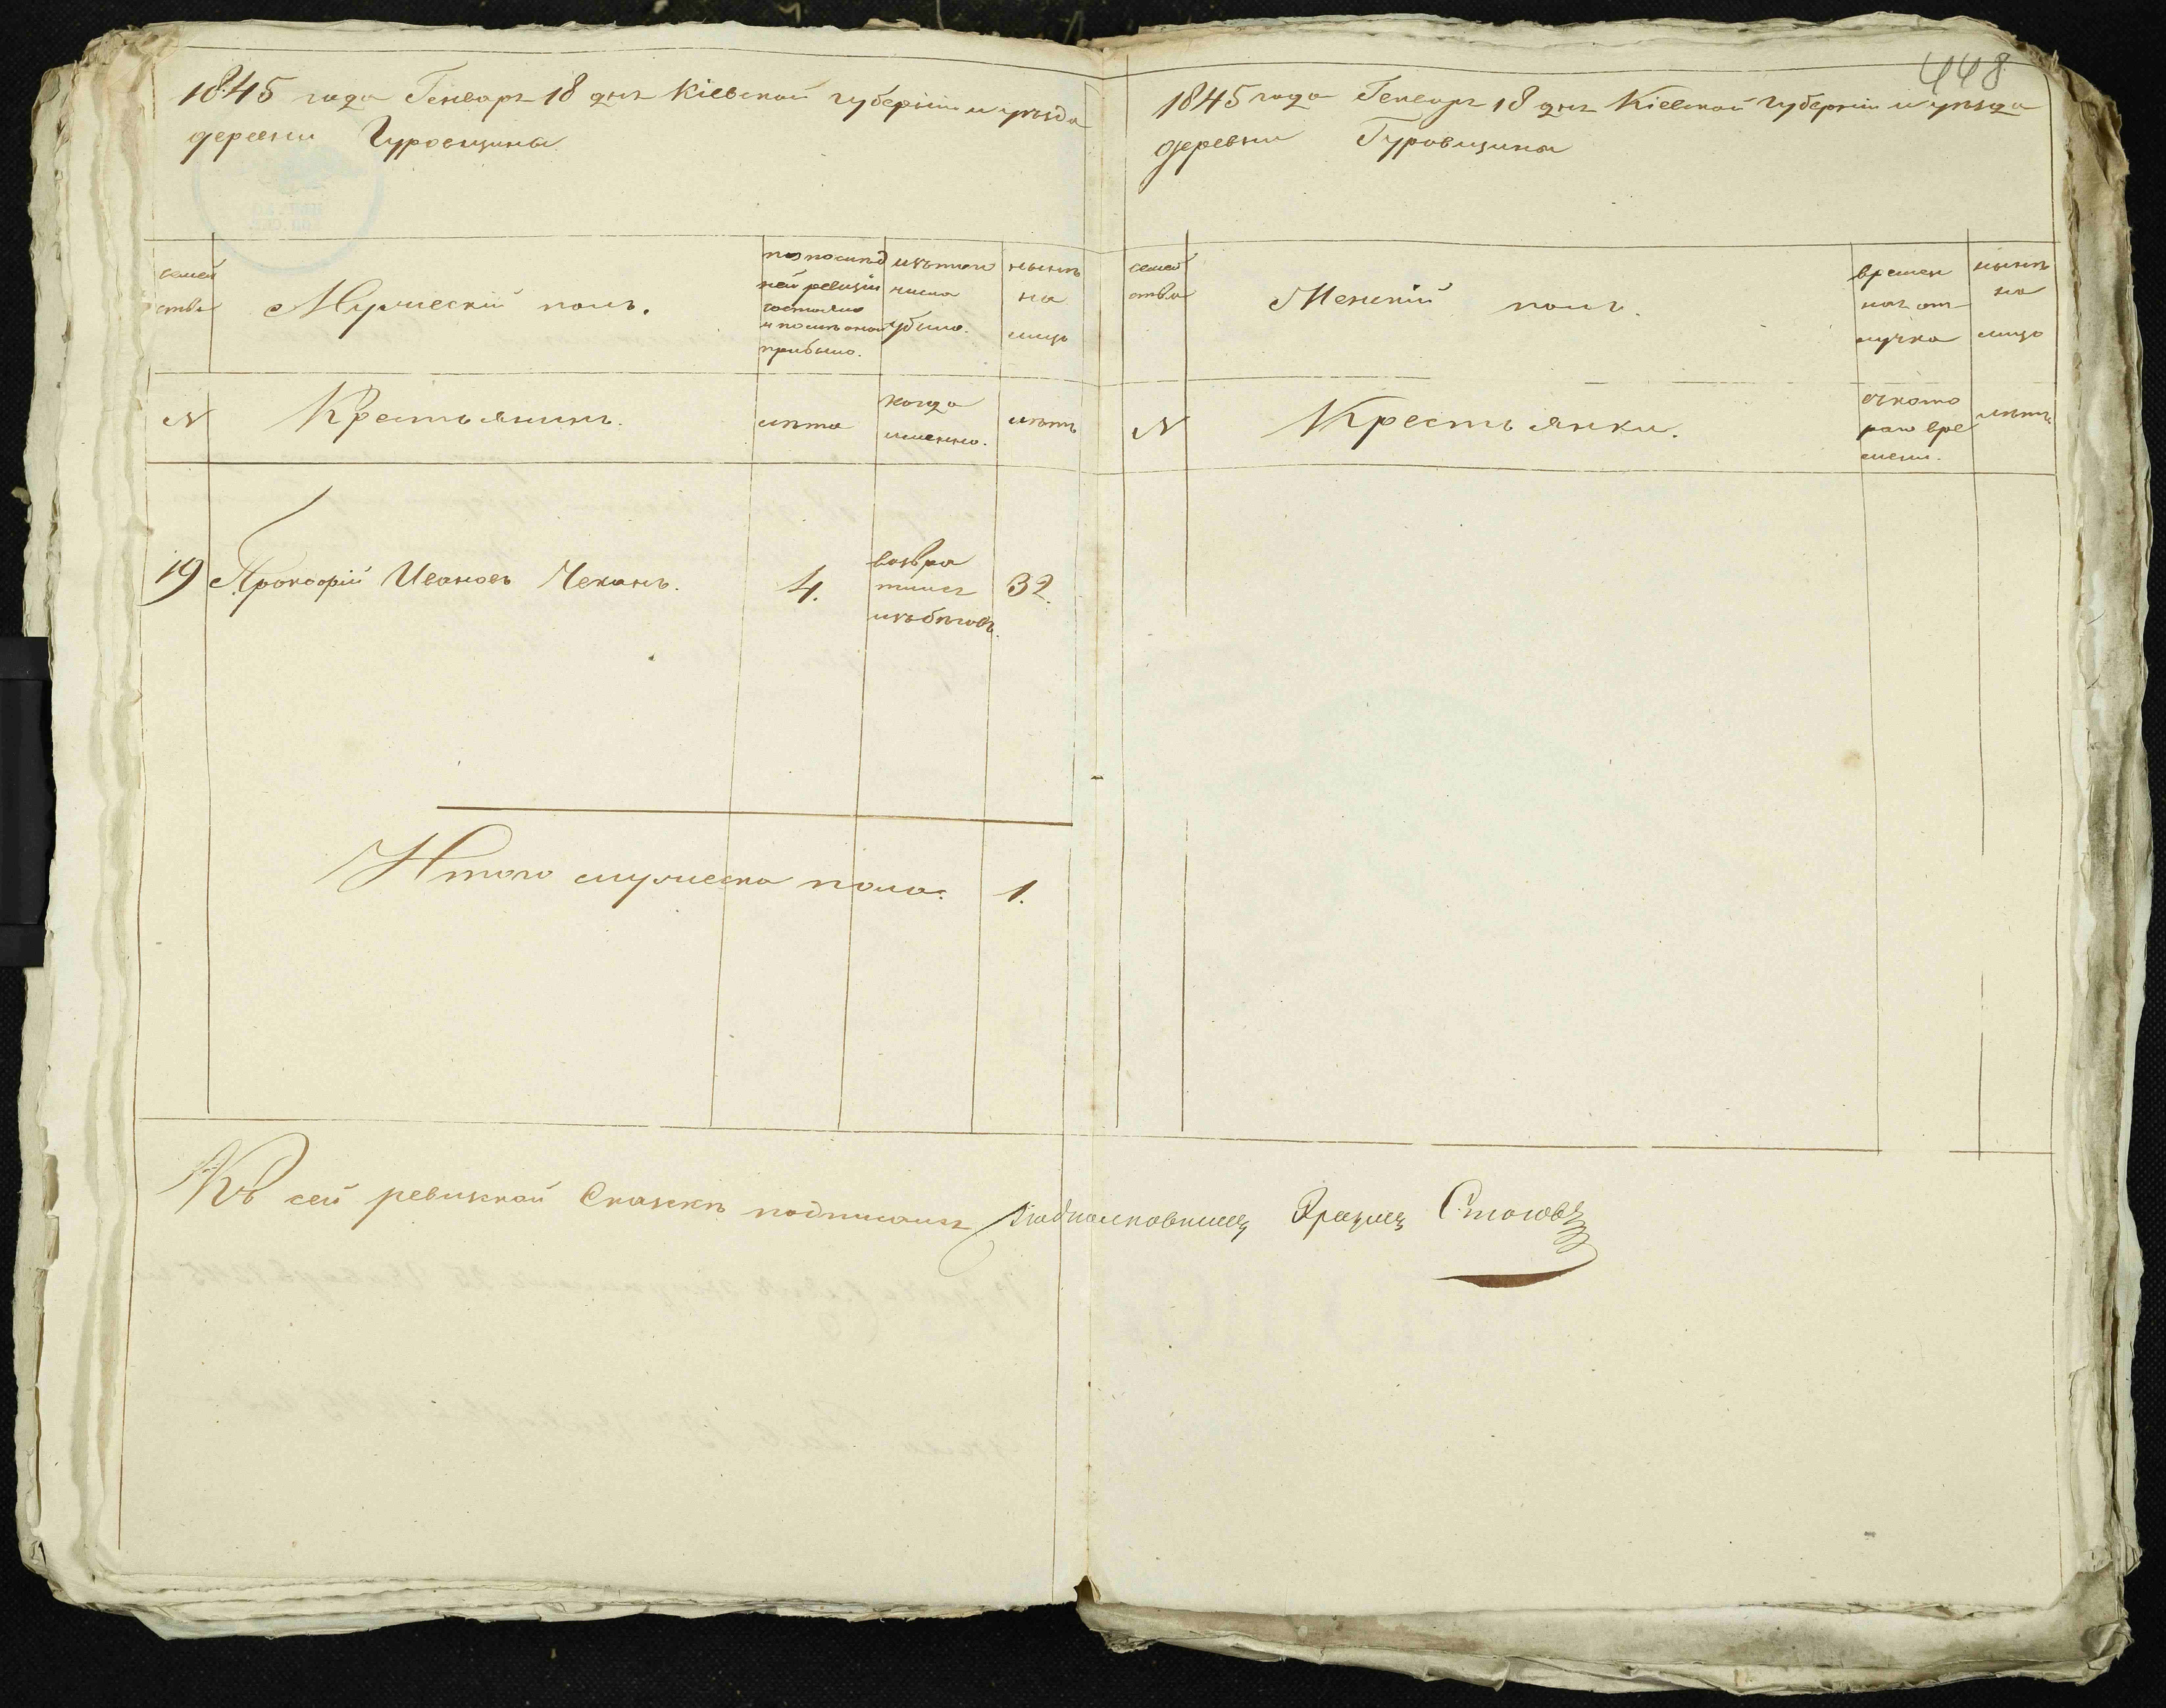 1845 года Генваря 18 дня Кіевской губерніи и уѣзда
деревни Гуровщины
семей
ства
Мужескій полъ.
по послѣд
ней ревизіи
состояло
и послѣ оной
прибыло.
изъ того
числа
убыло.
нынѣ
на
лицо
N
Крестьянинъ.
лѣта
когда
именно.
лѣтъ
19
Прокофій Ивановъ Чеканъ.
4.
возвра
тился
изъ бѣговъ.
32.
Итого мужеска пола:
1.
448
1845 года Генваря 18 дня Кіевской губерніи и уѣзда
деревни Гуровщины
семей
ства
Женскій полъ.
времен
ная от
лучка
нынѣ
на
лицо
N
Крестьянки.
съ кото
раго вре
мени.
лѣтъ
Къ сей ревизской Сказкѣ подписалъ Подполковникъ Эразмъ Стоговъ